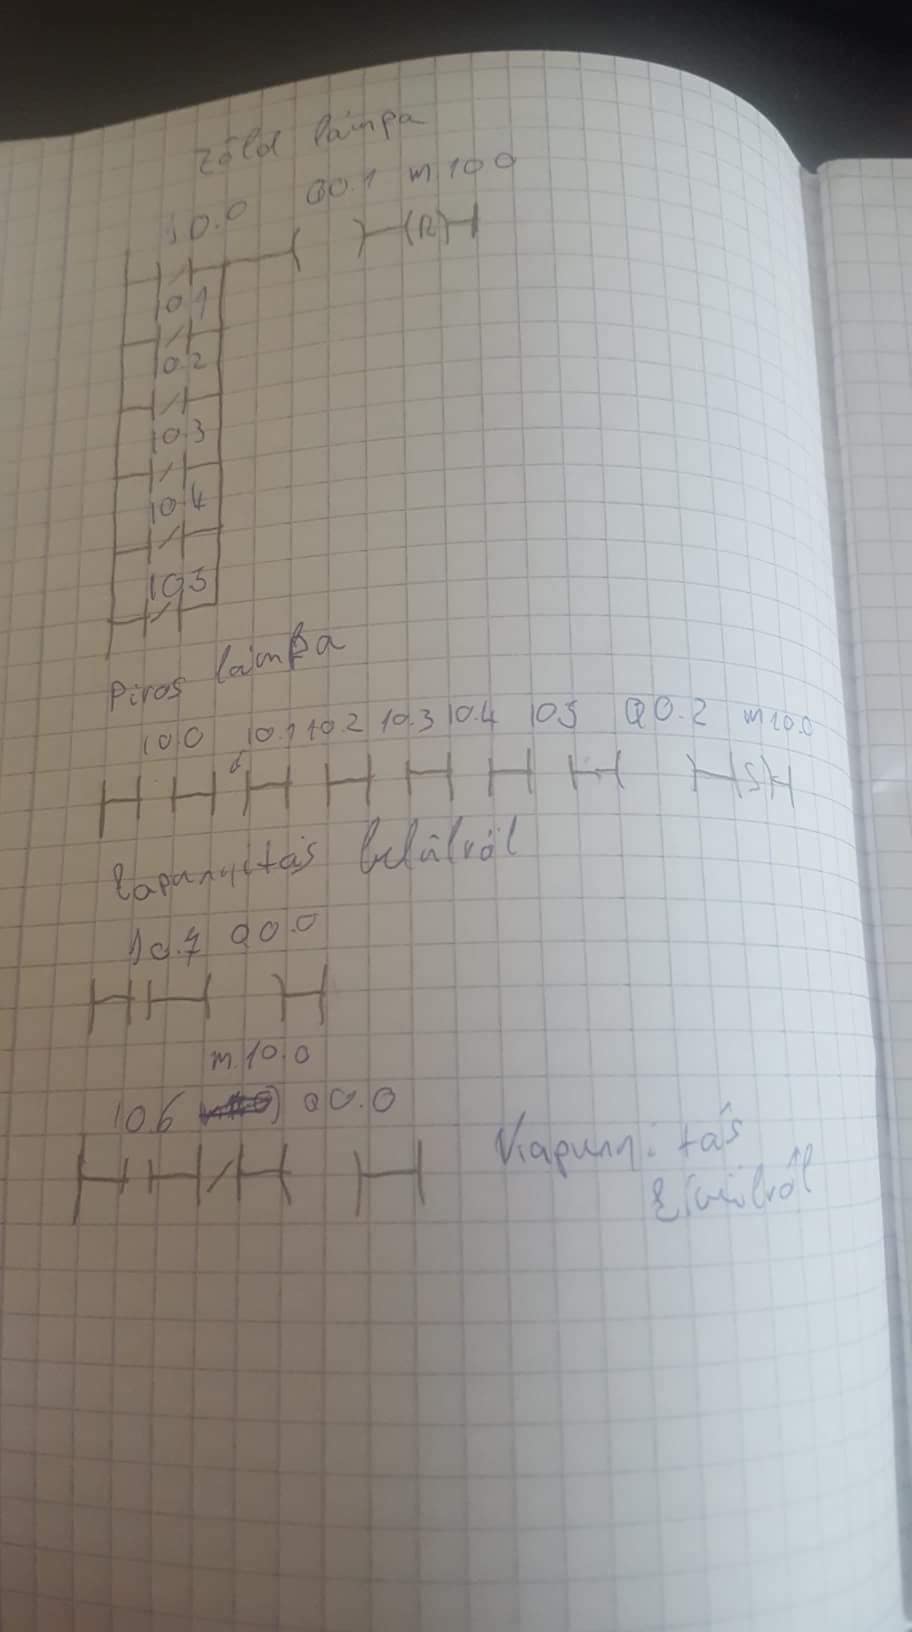 Zöld lámpa
I0.0 Q0.1 m10.0
(R)
I0.1
I0.2
I0.3
I0.4
I0.5
Piros lámpa
I0.0 I0.1 I0.2 I0.3 I0.4 I0.5 Q0.2 m10.0
(S)
Kapunyitás belülről
I0.7 Q0.0
m10.0
I0.6 Q0.0
Kapunyitás
kívülről